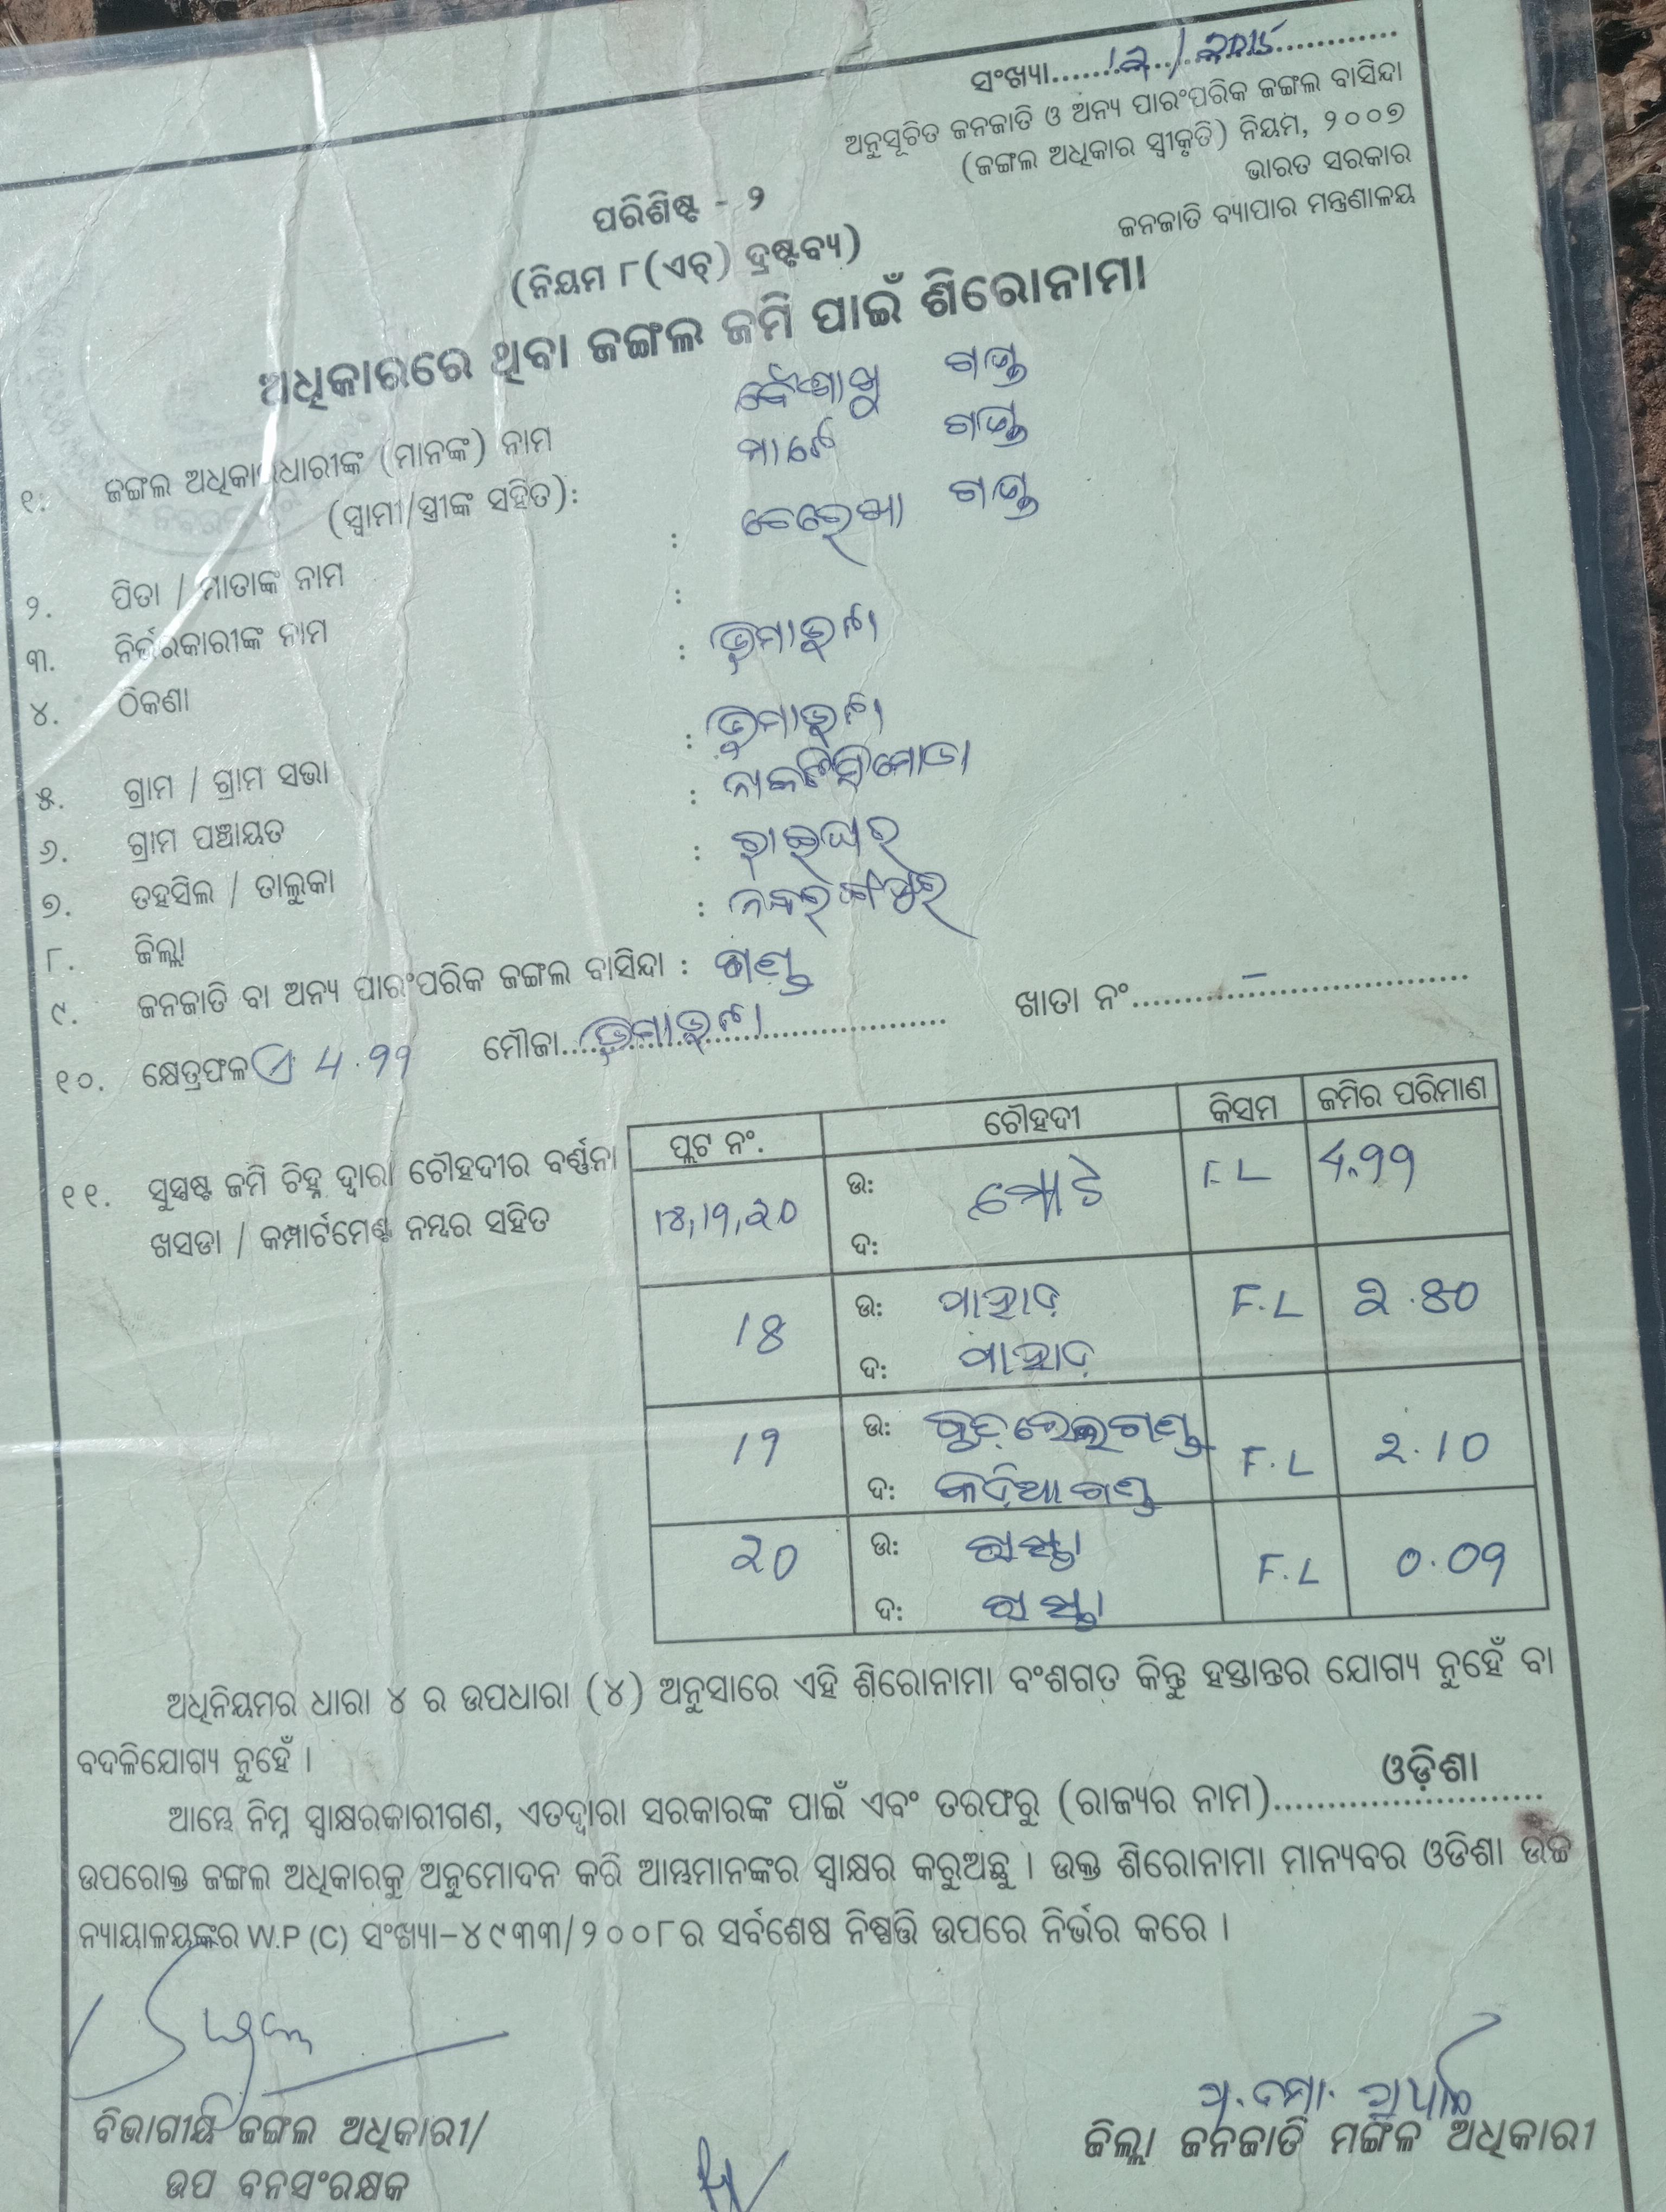 ସଂଖ୍ୟା....12/2015....
ଅନୁସୂଚିତ ଜନଜାତି ଓ ଅନ୍ୟ ପାରଂପରିକ ଜଙ୍ଗଲ ବାସିନ୍ଦା
(ଜଙ୍ଗଲ ଅଧିକାର ସ୍ୱୀକୃତି) ନିୟମ, ୨୦୦୭
ଭାରତ ସରକାର
ଜନଜାତି ବ୍ୟାପାର ମନ୍ତ୍ରଣାଳୟ
ପରିଶିଷ୍ଟ - ୨
(ନିୟମ ୮(ଏଚ୍) ଦ୍ରଷ୍ଟବ୍ୟ)
ଅଧିକାରରେ ଥିବା ଜଙ୍ଗଲ ଜମି ପାଇଁ ଶିରୋନାମା
୧. ଜଙ୍ଗଲ ଅଧିକାରଧାରୀଙ୍କ (ମାନଙ୍କ) ନାମ ବୈଶାଖୁ ଗଣ୍ଡ
(ସ୍ୱାମୀ/ସ୍ତ୍ରୀଙ୍କ ସହିତ): ଗଣ୍ଡ
୨. ପିତା / ମାତାଙ୍କ ନାମ : ଗଣ୍ଡ
୩. ନିର୍ଭରକାରୀଙ୍କ ନାମ :
୪. ଠିକଣା :
୫. ଗ୍ରାମ / ଗ୍ରାମ ସଭା :
୬. ଗ୍ରାମ ପଞ୍ଚାୟତ :
୭. ତହସିଲ / ତାଲୁକା : ରାଇଘର
୮. ଜିଲ୍ଲା : ନବରଙ୍ଗପୁର
୯. ଜନଜାତି ବା ଅନ୍ୟ ପାରଂପରିକ ଜଙ୍ଗଲ ବାସିନ୍ଦା : ଗଣ୍ଡ
୧୦. କ୍ଷେତ୍ରଫଳ ଏ 4.99 ମୌଜା.... ଖାତା ନଂ.... –
୧୧. ସୁସ୍ପଷ୍ଟ ଜମି ଚିହ୍ନ ଦ୍ୱାରା ଚୌହଦୀର ବର୍ଣ୍ଣନା
ଖସଡା / କମ୍ପାର୍ଟମେଣ୍ଟ ନମ୍ବର ସହିତ
ପ୍ଲଟ ନଂ. ଚୌହଦୀ କିସମ ଜମିର ପରିମାଣ
18,19,20 ଉ: ମୋଟ F.L 4.99
ଦ:
18 ଉ: ପାହାଡ଼ F.L 2.80
ଦ: ପାହାଡ଼
19 ଉ: F.L 2.10
ଦ: ଗଣ୍ଡ
20 ଉ: ରାସ୍ତା F.L 0.09
ଦ: ରାସ୍ତା
ଅଧିନିୟମର ଧାରା ୪ ର ଉପଧାରା (୪) ଅନୁସାରେ ଏହି ଶିରୋନାମା ବଂଶଗତ କିନ୍ତୁ ହସ୍ତାନ୍ତର ଯୋଗ୍ୟ ନୁହେଁ ବା
ବଦଳିଯୋଗ୍ୟ ନୁହେଁ ।
ଆମ୍ଭେ ନିମ୍ନ ସ୍ୱାକ୍ଷରକାରୀଗଣ, ଏତଦ୍ୱାରା ସରକାରଙ୍କ ପାଇଁ ଏବଂ ତରଫରୁ (ରାଜ୍ୟର ନାମ)....ଓଡ଼ିଶା....
ଉପରୋକ୍ତ ଜଙ୍ଗଲ ଅଧିକାରକୁ ଅନୁମୋଦନ କରି ଆମ୍ଭମାନଙ୍କର ସ୍ୱାକ୍ଷର କରୁଅଛୁ । ଉକ୍ତ ଶିରୋନାମା ମାନ୍ୟବର ଓଡିଶା ଉଚ୍ଚ
ନ୍ୟାୟାଳୟଙ୍କର W.P (C) ସଂଖ୍ୟା-୪୯୩୩/୨୦୦୮ର ସର୍ବଶେଷ ନିଷ୍ପତ୍ତି ଉପରେ ନିର୍ଭର କରେ ।
ବିଭାଗୀୟ ଜଙ୍ଗଲ ଅଧିକାରୀ/
ଉପ ବନସଂରକ୍ଷକ
ଜିଲ୍ଲା ଜନଜାତି ମଙ୍ଗଳ ଅଧିକାରୀ